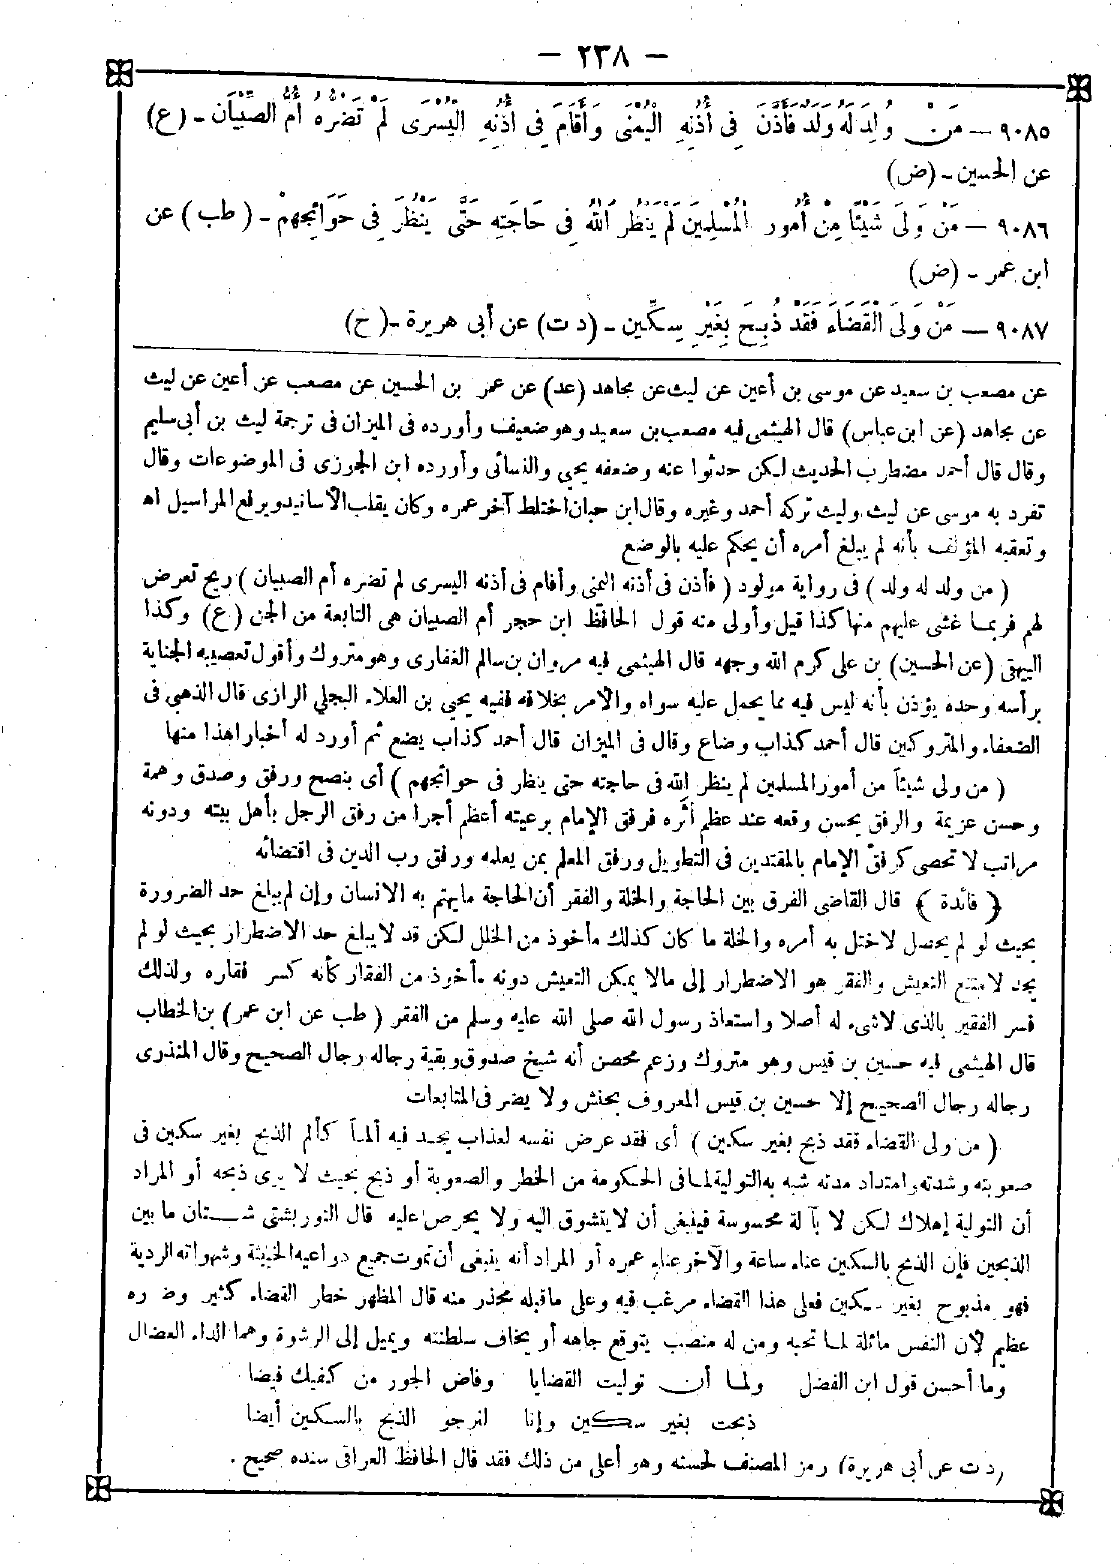 — ٢٣٨ —
٩٠٨٥ — مَنْ وُلِدَ لَهُ وَلَدٌ فَأَذَّنَ فِى أُذُنِهِ الْيُمْنَى وَأَقَامَ فِى أُذُنِهِ الْيُسْرَى لَمْ تَضُرَّهُ أُمُّ الصِّبْيَانِ - (ع)
عن الحسين - (ض)
٩٠٨٦ — مَنْ وَلِىَ شَيْئًا مِنْ أُمُورِ الْمُسْلِمِينَ لَمْ يَنْظُرِ اللّهُ فِى حَاجَتِهِ حَتَّى يَنْظُرَ فِى حَوَائِجِهِمْ - (طب) عن
ابن عمر - (ض)
٩٠٨٧ — مَنْ وَلِىَ الْقَضَاءَ فَقَدْ ذُبِحَ بِغَيْرِ سِكِّين - (د ت) عن أبى هريرة - (ح)
عن مصعب بن سعيد عن موسى بن أعين عن ليث عن مجاهد (عد) عن عمر بن الحسين عن مصعب عن أعين عن ليث
عن مجاهد (عن ابن عباس) قال الهيثمى فيه مصعب بن سعيد وهو ضعيف وأورده فى الميزان فى ترجمة ليث بن أبى سليم
وقال قال أحمد مضطرب الحديث لكن حدثوا عنه وضعفه يحيى والنسائى وأورده ابن الجوزى فى الموضوعات وقال
تفرد به موسى عن ليث وليث تركه أحمد وغيره وقال ابن حبان اختلط آخر عمره وكان يقلب الأسانيد ويرفع المراسيل اهـ
وتعقبه المؤلف بأنه لم يبلغ أمره أن يحكم عليه بالوضع
(من ولد له ولد) فى رواية مولود (فأذن فى أذنه اليمنى وأقام فى أذنه اليسرى لم تضره أم الصبيان) ريح تعرض
لهم فربما غشى عليهم منها كذا قيل وأولى منه قول الحافظ ابن حجر أم الصبيان هى التابعة من الجن (ع) وكذا
البيهقى (عن الحسين) بن على كرم الله وجهه قال الهيثمى فيه مروان بن سالم الغفارى وهو متروك وأقول تعصيبه الجناية
برأسه وحده يؤذن بأنه ليس فيه مما يحمل عليه سواه والأمر بخلافه ففيه يحيى بن العلاء البجلى الرازى قال الذهبى فى
الضعفاء والمتروكين قال أحمد كذاب وضاع وقال فى الميزان قال أحمد كذاب يضع ثم أورد له أخبارا هذا منها
(من ولى شيئا من أمور المسلمين لم ينظر الله فى حاجته حتى ينظر فى حوائجهم) أى بنصح ورفق وصدق وهمة
وحسن عزيمة والرفق يحسن وقعه عند عظم أثره فرفق الإمام برعيته أعظم أجرا من رفق الرجل بأهل بيته ودونه
مراتب لا تحصى كرفق الإمام بالمقتدين فى التطويل ورفق المعلم بمن يعلمه ورفق رب الدين فى اقتضائه
﴿فائدة﴾ قال القاضى الفرق بين الحاجة والخلة والفقر أن الحاجة ما يهتم به الانسان وإن لم يبلغ حد الضرورة
بحيث لو لم يحصل لاختل به أمره والخلة ما كان كذلك مأخوذ من الخلل لكن قد لا يبلغ حد الاضطرار بحيث لو لم
يجد لامتنع التعيش والفقر هو الاضطرار إلى مالا يمكن التعيش دونه مأخوذ من الفقار كأنه كسر فقاره ولذلك
فسر الفقير بالذى لاشىء له أصلا واستعاذ رسول الله صلى الله عليه وسلم من الفقر (طب عن ابن عمر) بن الخطاب
قال الهيثمى فيه حسين بن قيس وهو متروك وزعم محصن أنه شيخ صدوق وبقية رجاله رجال الصحيح وقال المنذرى
رجاله رجال الصحيح إلا حسين بن قيس المعروف بحنش ولا يضر فى المتابعات
(من ولى القضاء فقد ذبح بغير سكين) أى فقد عرض نفسه لعذاب يجد فيه ألما كألم الذبح بغير سكين فى
صعوبته وشدته وامتداد مدته شبه به التولية لما فى الحكومة من الخطر والصعوبة أو ذبح بحيث لا يرى ذبحه أو المراد
أن التولية إهلاك لكن لا بآلة محسوسة فينبغى أن لا يتشوق اليه ولا يحرص عليه قال التوربشتى شتان ما بين
الذبحين فإن الذبح بالسكين عناء ساعة والآخر عناء عمره أو المراد أنه ينبغى أن تموت جميع دواعيه الخبيثة وشهواته الردية
فهو مذبوح بغير سكين فعلى هذا القضاء مرغب فيه وعلى ماقبله محذر منه قال المظهر خطر القضاء كثير وضره
عظيم لأن النفس مائلة لما تحبه ومن له منصب يتوقع جاهه أو يخاف سلطنته ويميل إلى الرشوة وهما الداء العضال
وما أحسن قول ابن الفضل ولما أن توليت القضايا وفاض الجور من كفيك فيضا
ذبحت بغير سكين وإنا لنرجو الذبح بالسكين أيضا
(د ت عن أبى هريرة) رمز المصنف لحسنه وهو أعلى من ذلك فقد قال الحافظ العراقى سنده صحيح .